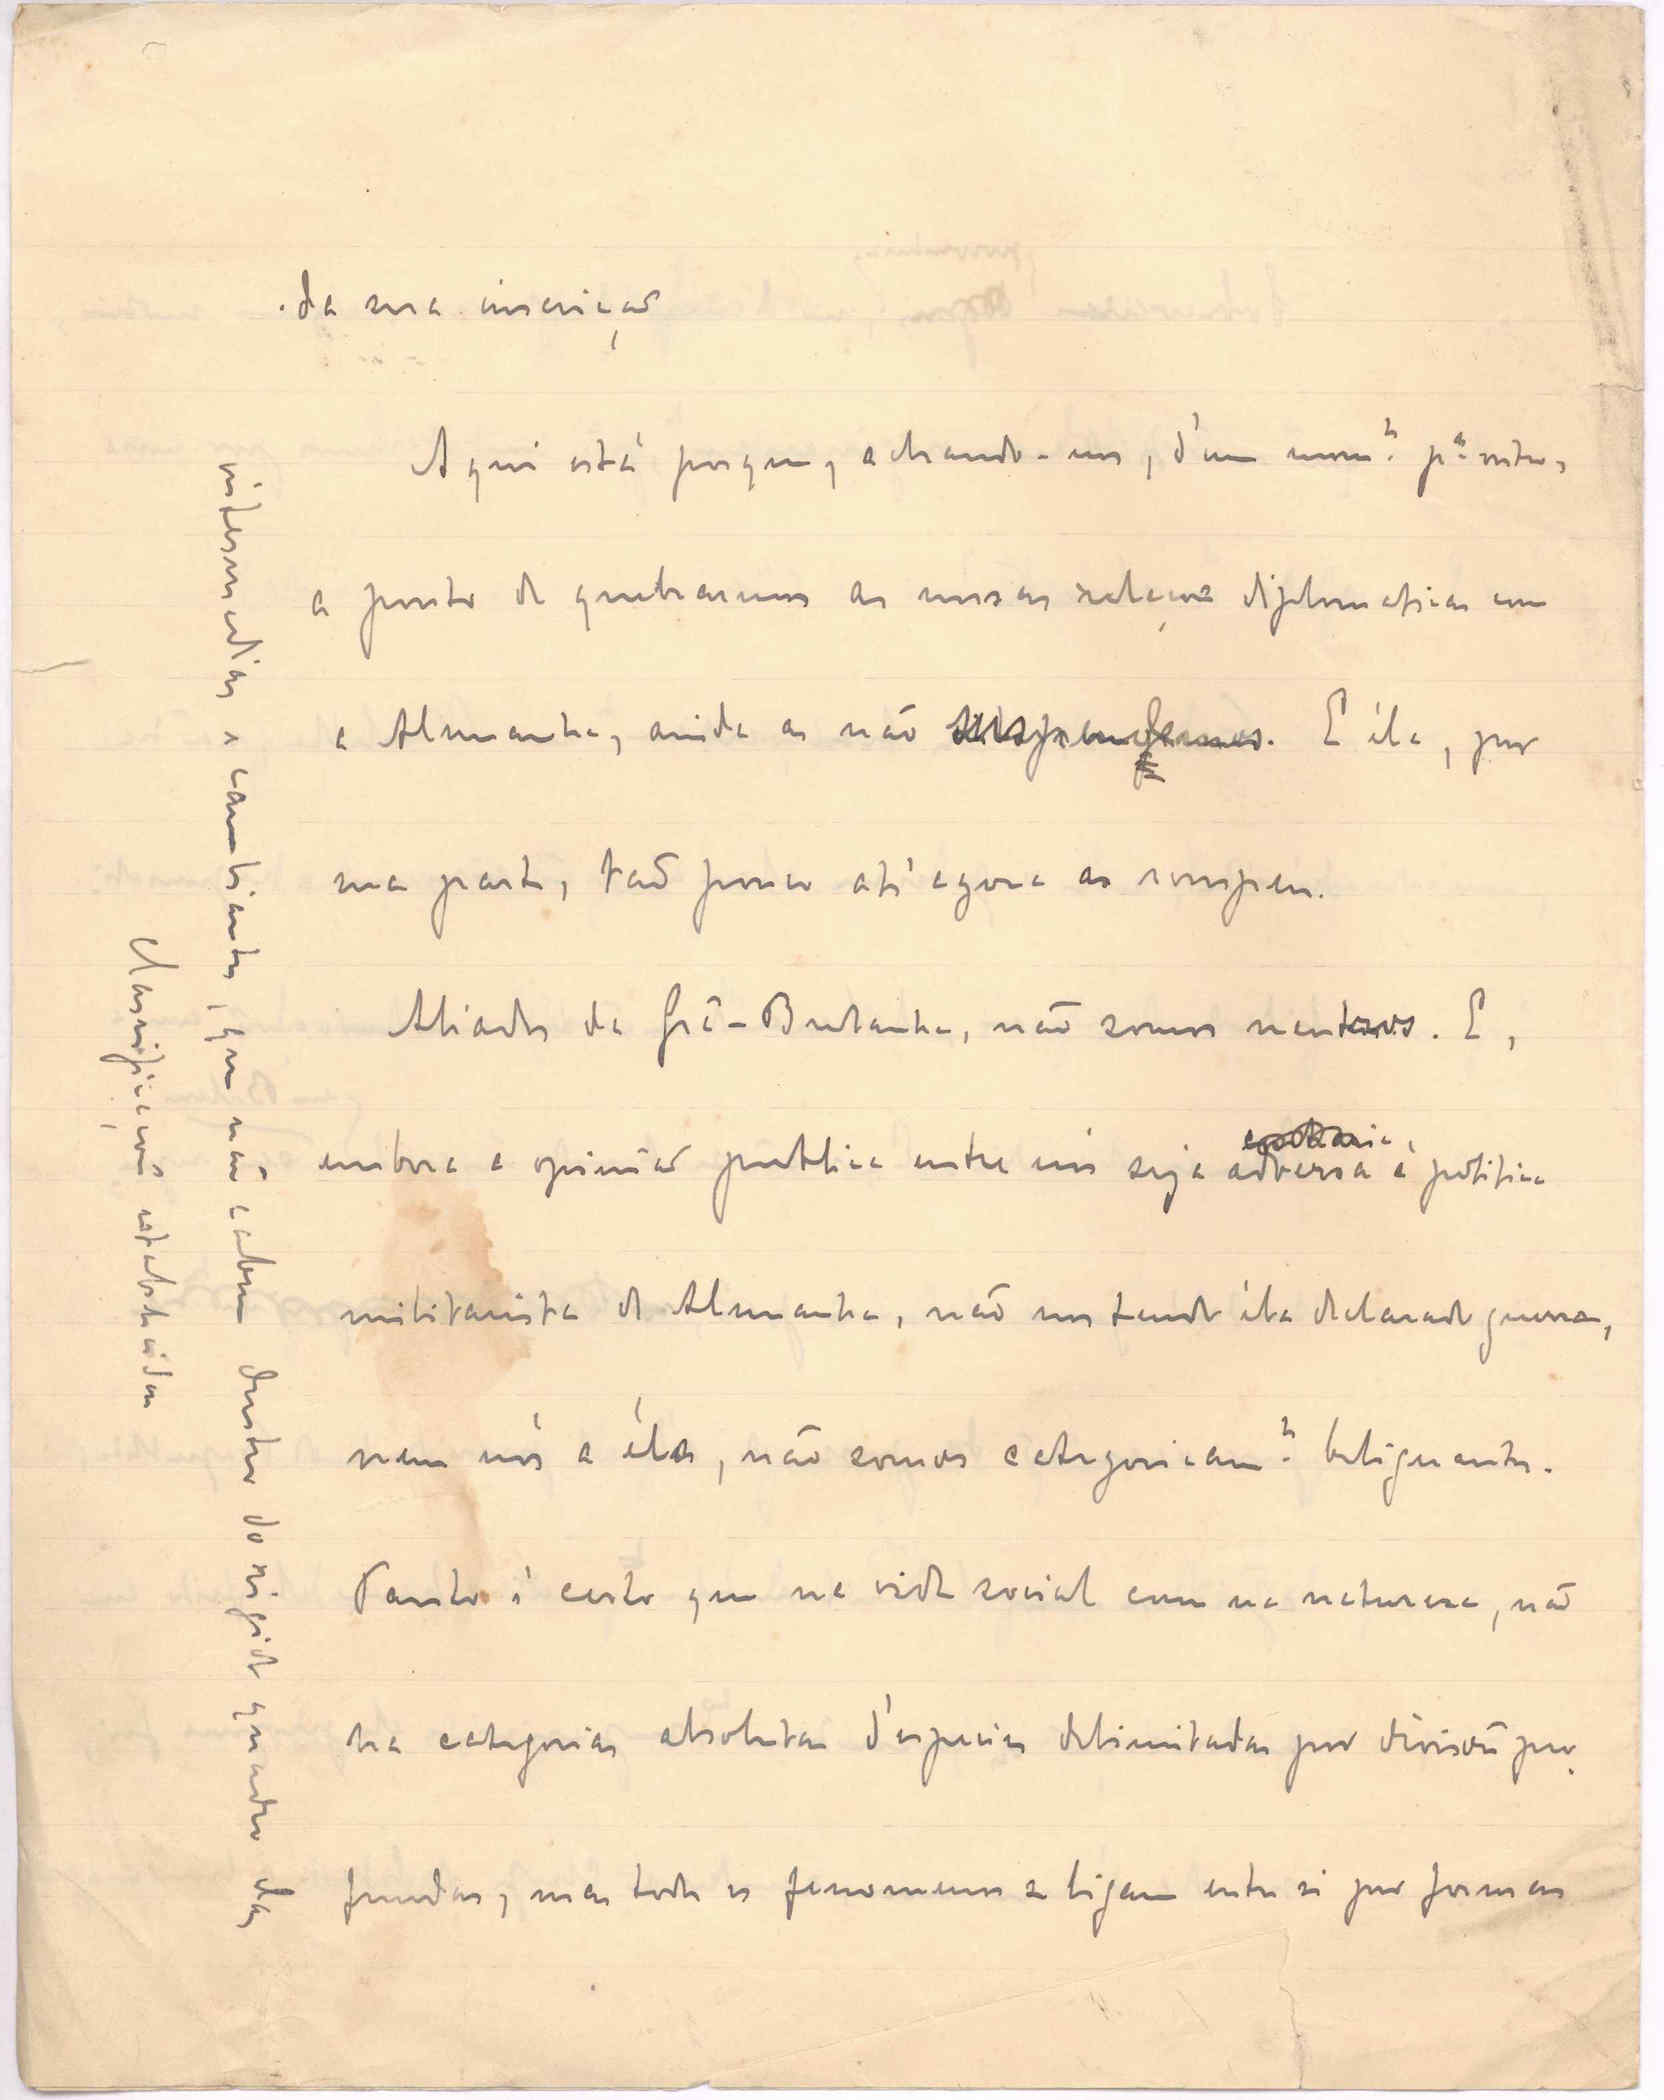 da sua inscrição
Aqui está porque, achando-nos, d'um mom.to p.a outro,
a ponto de quebrarmos as nossas relações diplomaticas com
a Alemanha, ainda as não suspendemos. E éla, por
sua parte, tão pouco até agora as rompeu.
Aliados da Grã-Bretanha, não somos neutros. E,
embora a opinião publica entre nós seja adversa á politica
contraria
militarista da Alemanha, não nos tendo éla declarado guerra,
nem nós a éla, não somos categoricam.te beligerantes.
Tanto é certo que na vida social como na natureza, não
ha categorias absolutas d'especies delimitadas por divisões pro-
fundas, mas todos os fenomenos se ligam entre si por formas
intermedias e cambiantes, que não cabem dentro do rigido quadro das
classificações estabelecidas